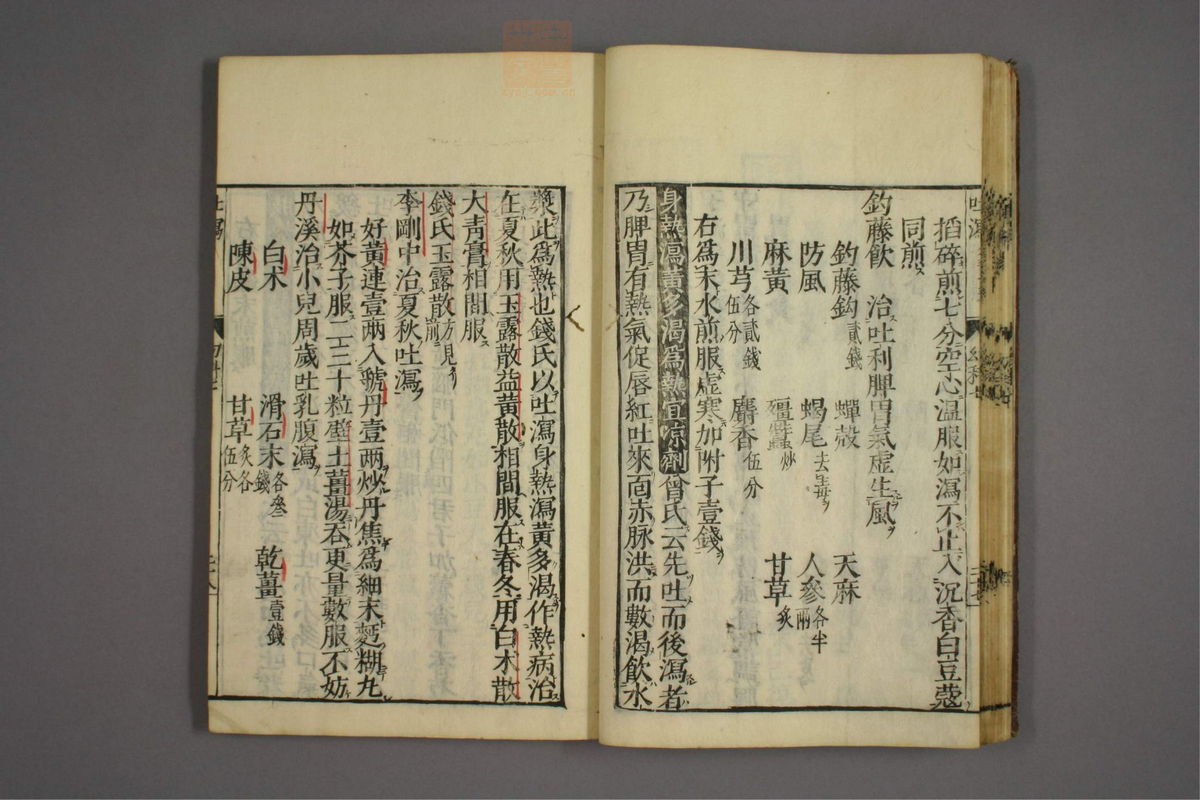 搯碎煎七分空心温服如瀉不止入沉香白豆蔻
同煎
釣藤飲 治吐利脾胃氣虚生風
釣藤鈎貳錢 蟬殻 天麻
防風 蝎尾去毒 人參各半兩
麻黄 殭蠶炒 甘草炙
川芎各貳錢伍分 麝香伍分
右爲末水煎服虚寒加附子壹錢
身熱瀉黄多渴爲熱宜凉劑曾氏云先吐而後瀉者
乃脾胃有熱氣促唇紅吐來面赤脉洪而數渴飲水
漿此爲熱也錢氏以吐瀉身熱瀉黄多渴作熱病治
在夏秋用玉露散益黄散相間服在春冬用白术散
大青膏相間服
錢氏玉露散方見前
李剛中治夏秋吐瀉
好黄連壹兩入虢丹壹兩炒丹焦爲細末麪糊丸
如芥子服二三十粒壁土薑湯吞更量數服不妨
丹溪治小兒周歲吐乳腹瀉
白术 滑石末各叁錢 乾薑壹錢
陳皮 甘草炙各伍分
吐瀉